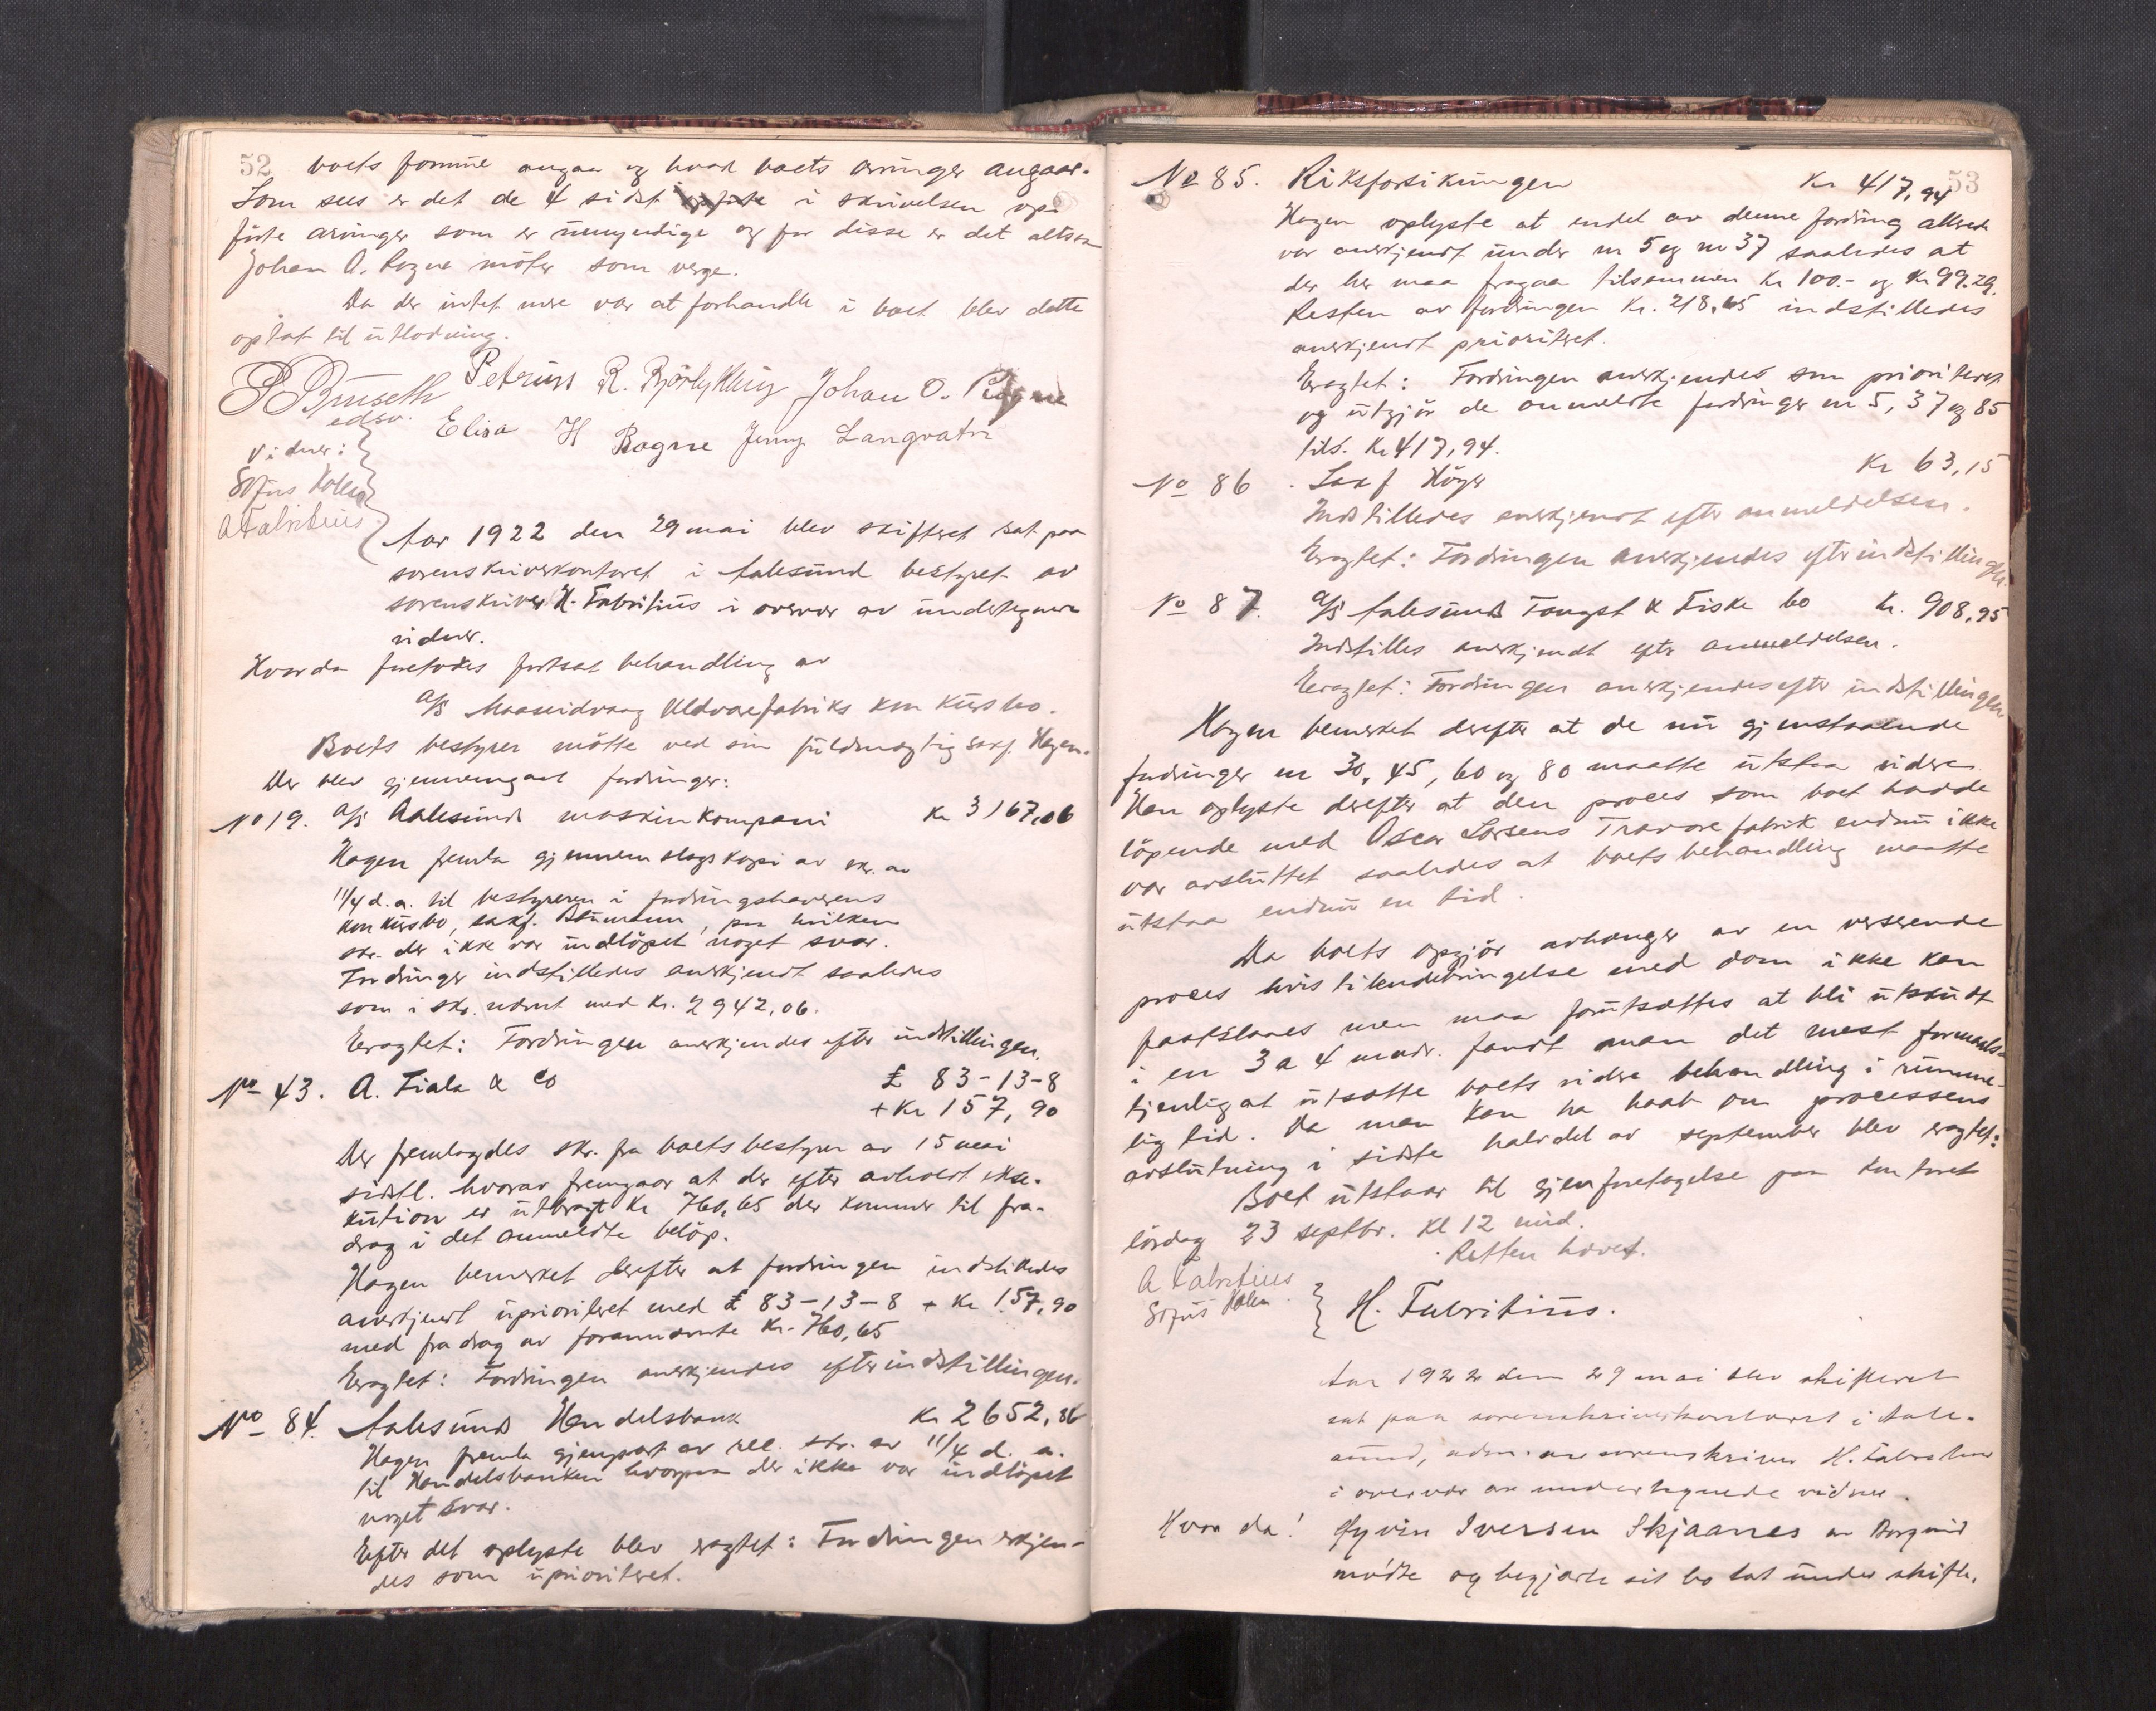 52 boets formue angaa og hvad boets arvinger angaar.
Som sees er det de 4 sidst i skrivelsen op-
førte arvinger som er umyndige og for disse er det altsaa
Johan O. Rogne møter som verge.
Da der intet mere var at forhandle i boet blev dette
optat til utlodning.
P Bruseth Petrus R. Bjørlykhug Johan O. Rogne
edsv. Elisa H Rogne Jenny Langvatn
Vidner:
Sofus Holen
A Fabritius
Aar 1922 den 29 mai blev skifteret sat paa
sorenskriverkontoret i Aalesund bestyret av
sorenskriver H. Fabritius i overvær av undertegnede
vidner.
Hvorda foretokes fortsat behandling av
A/S Maaseidvaag Uldvarefabriks konkursbo.
Boets bestyrer møtte ved sin fuldmægtig sakf. Hagen.
Der blev gjennemgaat fordringer:
No 19. A/S Aalesunds maskinkompani Kr 3167,06
Hagen fremla gjennemslagskopi av skr. av
11/4 d.a. til bestyreren i fordringshaverens
konkursbo, sakf. Baumann, paa hvilken
skr. der ikke var indløpet noget svar.
Fordringer indstilledes anerkjendt saaledes
som i skr. nævnt med Kr. 2942,06.
Eragtet: Fordringen anerkjendes efter indstillingen.
No 43. A. Fiala & Co £ 83-13-8
+ Kr 157,90
Der fremlagdes skr. fra boets bestyrer av 15 mai
sidstl. hvorav fremgaar at der efter avholdt ekse-
kution er utbragt Kr 760,65 der kommer til fra-
drag i det anmeldte beløp.
Hagen bemerket derefter at fordringen indstilledes
anerkjendt uprioritert med £ 83-13-8 + Kr 157,90
med fradrag av forannævnte Kr. 760,65
Eragtet: Fordringen anerkjendes efter indstillingen.
No 84. Aalesunds Handelsbank Kr 2652,86
Hagen fremla gjenpart av rec. skr. av 11/4 d. a.
til Handelsbanken hvorpaa der ikke var indløpet
noget svar.
Efter det oplyste blev eragtet: Fordringen erkjen-
des som uprioritert.
53
No 85. Riksforsikringen Kr 417,94
Hagen oplyste at endel av denne fordring allerede
var anerkjendt under nr 5 og nr 37 saaledes at
der her maa fragaa tilsammen Kr 100.- og Kr 99.29.
Resten av fordringen Kr. 218,65 indstilledes
anerkjendt prioritert.
Eragtet: Fordringen anerkjendes som prioriteret
og utgjør de anmeldte fordringer nr 5, 37 og 85
tils. Kr 417,94.
No 86. Sakf Høyer Kr 63,15
Indstilledes anerkjendt efter anmeldelsen.
Eragtet: Fordringen anerkjendes efter indstillingen.
No 87. A/S Aalesunds Fangst & Fiske Co Kr. 908,95
Indstilles anerkjendt efter anmeldelsen.
Eragtet: Fordringen anerkjendes efter indstillingen
Hagen bemerket derefter at de nu gjenstaaende
fordringer nr 30, 45, 60 og 80 maatte utstaa videre.
Han oplyste derefter at den proces som boet hadde
løpende med Oscar Larsens Trævarefabrik endnu ikke
var avsluttet saaledes at boets behandling maatte
utstaa endnu en tid.
Da boets opgjør avhænger av en verserende
proces hvis tilendebringelse med dom ikke kan
fastslaaes men maa forutsættes at bli utskudt
i en 3 a 4 mndr. fandt man det mest formaals-
tjenlig at utsætte boets videre behandling i rumme-
lig tid. Da man kan ha haab om processens
avslutning i sidste halvdel av september blev eragtet:
Boet utstaar til gjenforetagelse paa kontoret
lørdag 23 septbr. kl 12 mid.
Retten hævet.
A Fabritius
Sofus Holen
H. Fabritius.
Aar 1922 den 29 mai blev skifteret
sat paa sorenskriverkontoret i Aale-
sund, adm. av sorenskriver H. Fabritius
i overvær av undertegnede vidner.
Hvor da! Øyvin Iversen Skjaanes av Borgund
mødte og begjærte sit bo tat under skifte.